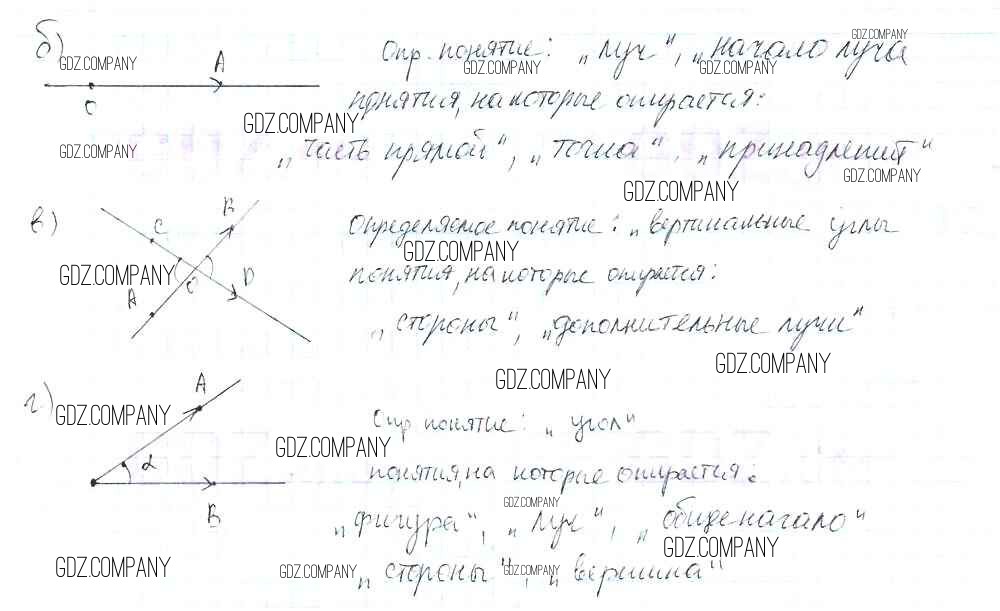 б)
GDZ.COMPANY
A
O
Опр. понятие: „луч“, „начало луча
GDZ.COMPANY
GDZ.COMPANY
GDZ.COMPANY
понятия, на которые опирается:
GDZ.COMPANY
GDZ.COMPANY
„часть прямой“, „точка“, „принадлежит“
GDZ.COMPANY
GDZ.COMPANY
в)
C
B
A
O
D
GDZ.COMPANY
Определяемое понятие: „вертикальные углы
GDZ.COMPANY
понятия, на которые опирается:
„стороны“, „дополнительные лучи“
GDZ.COMPANY
GDZ.COMPANY
г)
GDZ.COMPANY
A
α
B
Опр понятие: „угол“
GDZ.COMPANY
понятия, на которые опирается:
GDZ.COMPANY
„фигура“, „луч“, „общее начало“
GDZ.COMPANY
„стороны“, „вершина“
GDZ.COMPANY
GDZ.COMPANY
GDZ.COMPANY